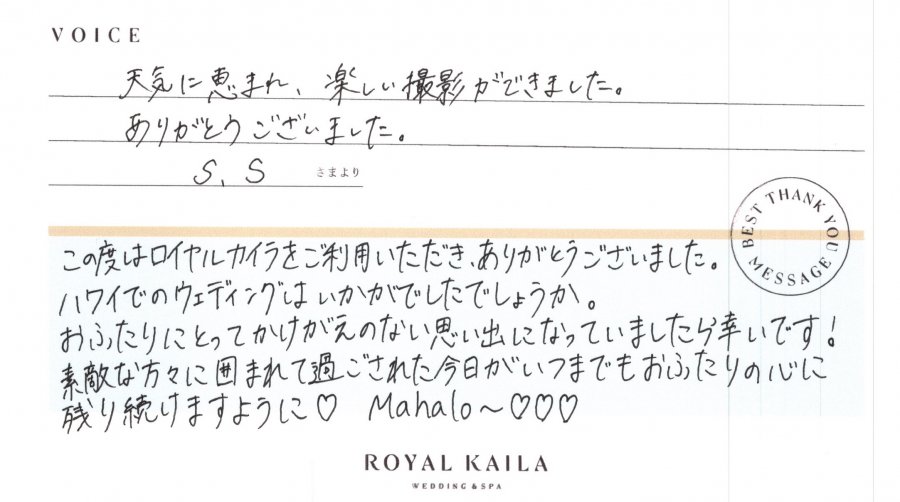 VOICE
天気に恵まれ、楽しい撮影ができました。
ありがとうございました。
S、S さまより
BEST THANK YOU MESSAGE
この度はロイヤルカイラをご利用いただき、ありがとうございました。
ハワイでのウェディングはいかがでしたでしょうか。
おふたりにとってかけがえのない思い出になっていましたら幸いです!
素敵な方々に囲まれて過ごされた今日がいつまでもおふたりの心に
残り続けますように♡ Mahalo~♡♡♡
ROYAL KAILA
WEDDING & SPA